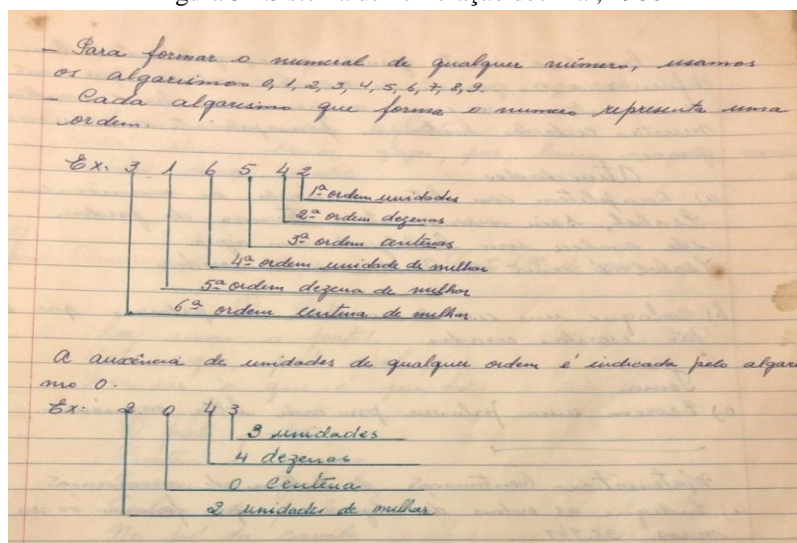 - Para formar o numeral de qualquer número, usamos
os algarismos 0, 1, 2, 3, 4, 5, 6, 7, 8, 9.
- Cada algarismo que forma o numero representa uma
ordem.
Ex: 3 1 6 5 4 2
1ª ordem unidades
2ª ordem dezenas
3ª ordem centenas
4ª ordem unidade de milhar
5ª ordem dezena de milhar
6ª ordem centena de milhar
A auxência de unidades de qualquer ordem é indicada pelo algaris
mo 0.
Ex: 2 0 4 3
3 unidades
4 dezenas
0 centena
2 unidades de milhar